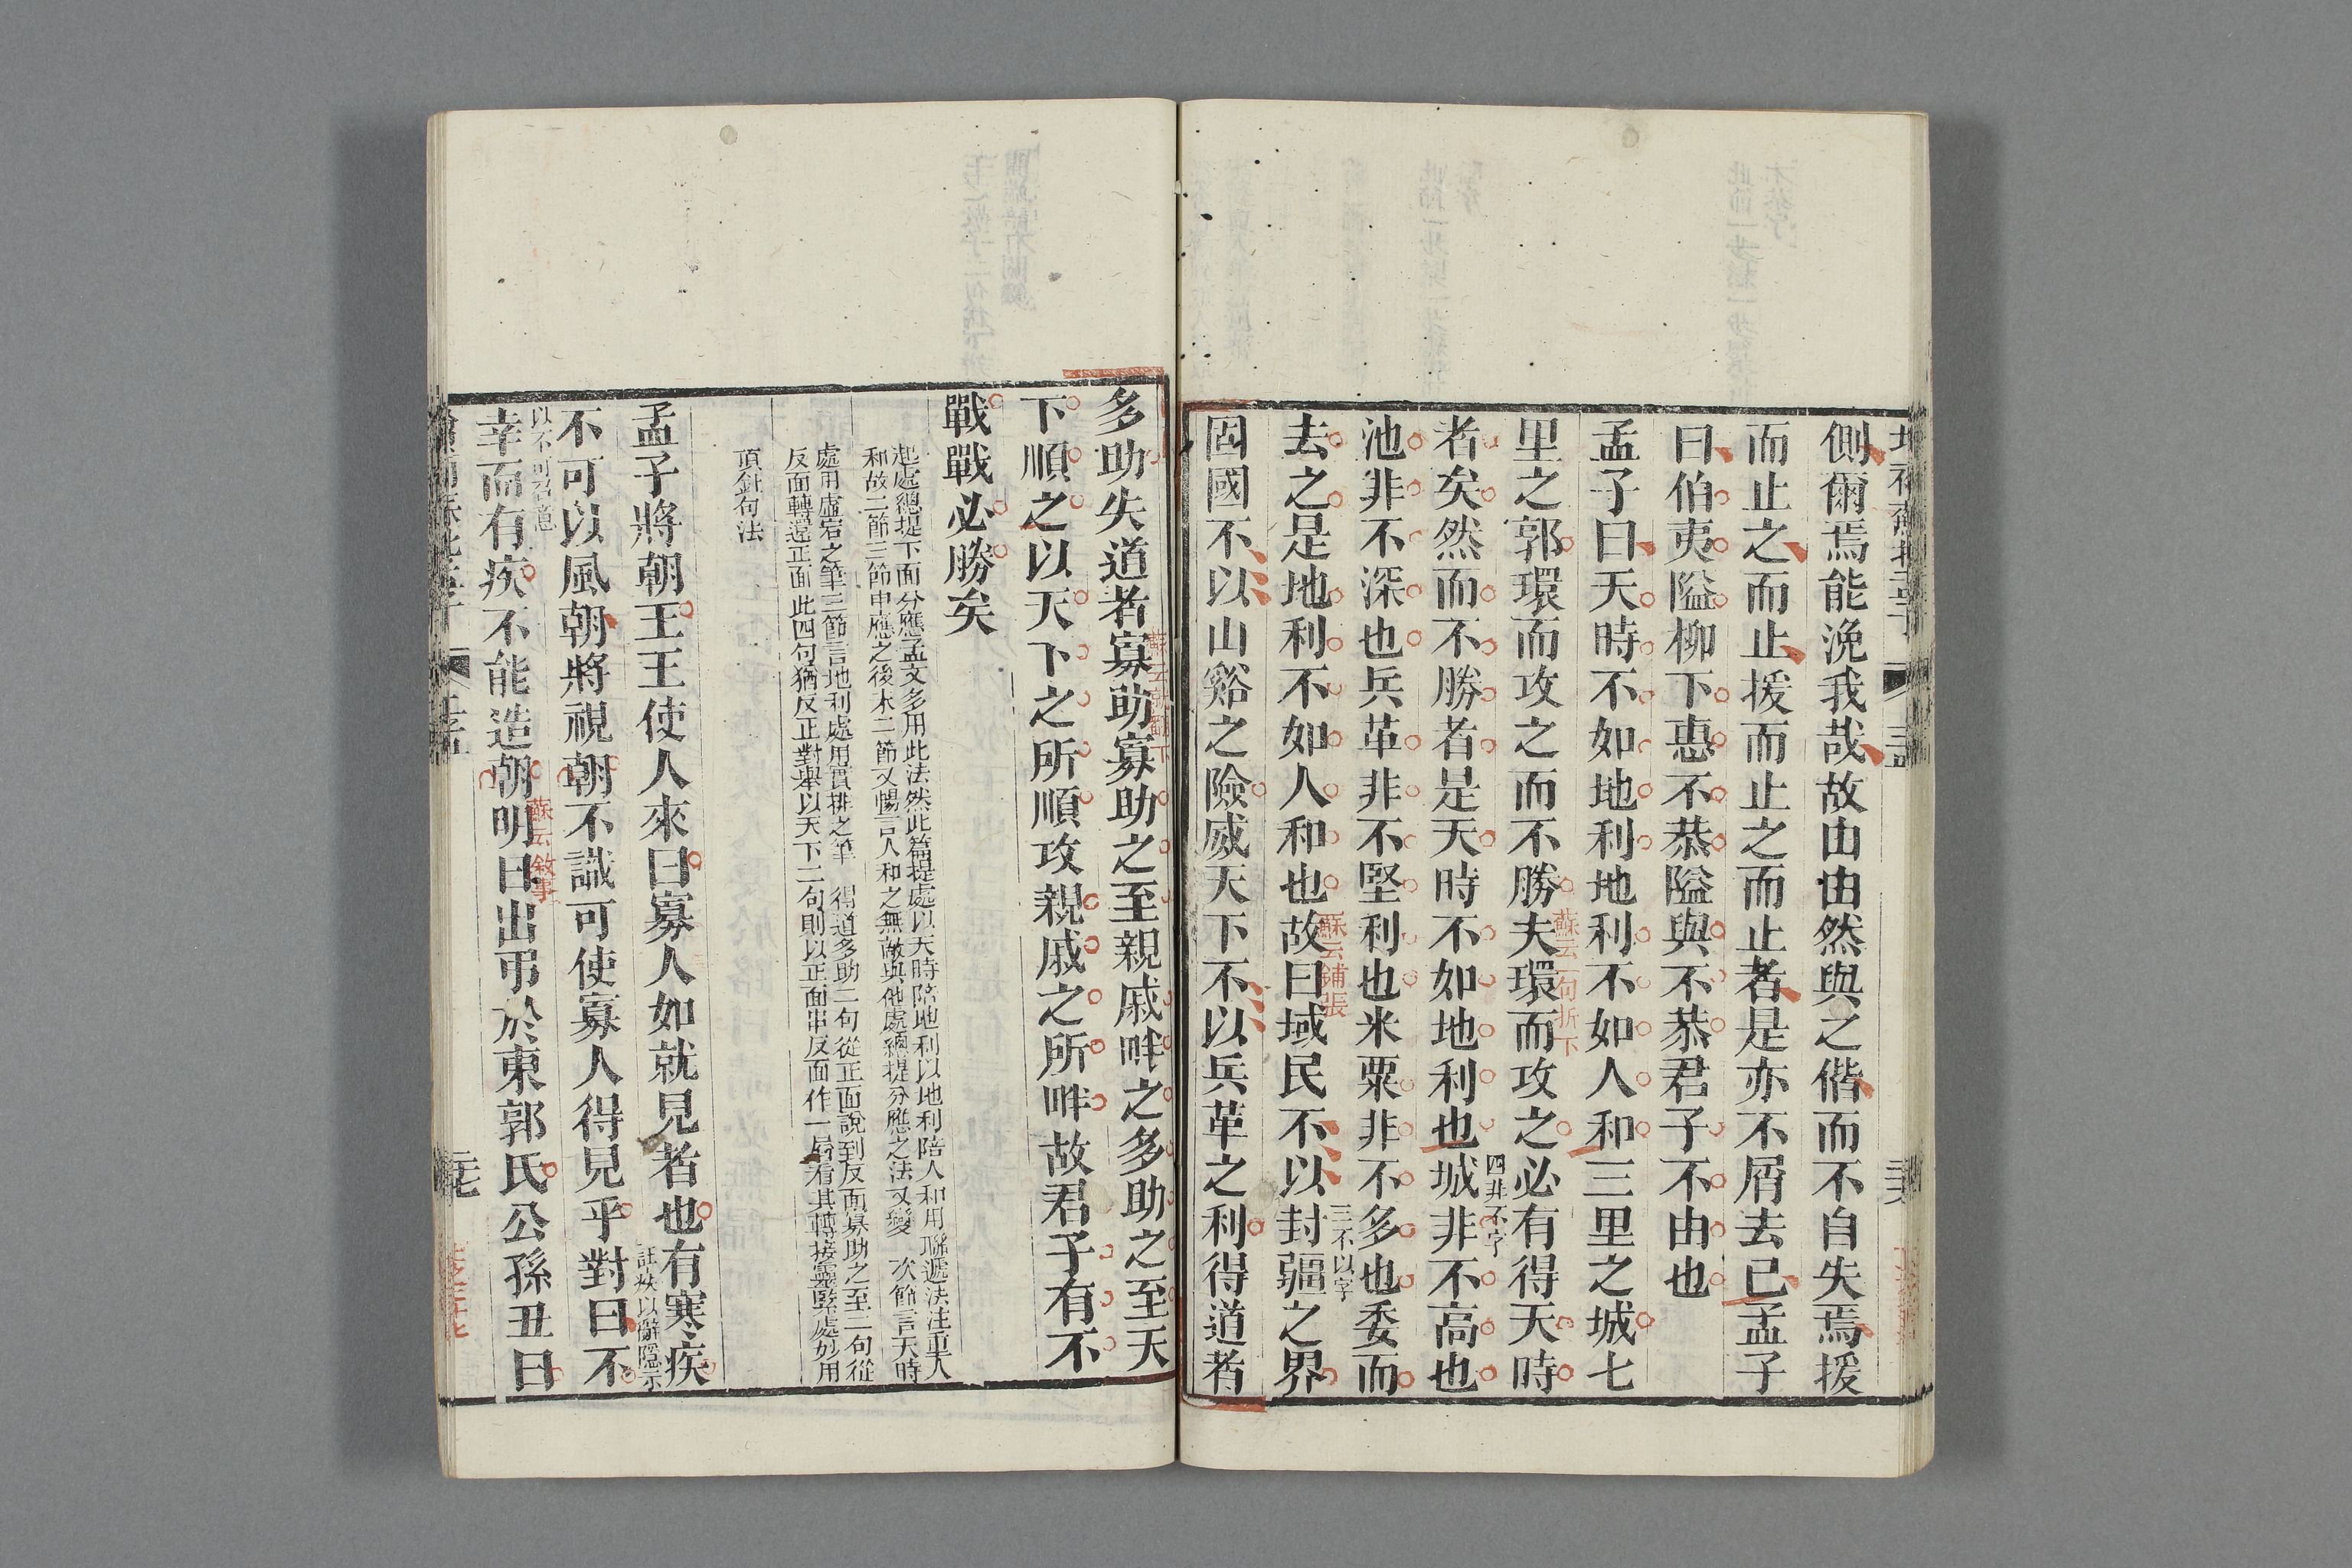 側爾焉能浼我哉故由由然與之偕而不自失焉援
而止之而止援而止之而止者是亦不屑去已孟子
曰伯夷隘柳下惠不恭隘與不恭君子不由也
孟子曰天時不如地利地利不如人和三里之城七
里之郭環而攻之而不勝夫環而攻之必有得天時
蘇云一句折下
者矣然而不勝者是天時不如地利也城非不高也
四非不字
池非不深也兵革非不堅利也米粟非不多也委而
去之是地利不如人和也故曰域民不以封疆之界
蘇云鋪張
三不以字
固國不以山谿之險威天下不以兵革之利得道者
多助失道者寡助寡助之至親戚畔之多助之至天
下順之以天下之所順攻親戚之所畔故君子有不
戰戰必勝矣
起處總提下面分應孟文多用此法然此篇提處以天時陪地利以地利陪人和用聯遞法注重人
和故二節三節申應之後末二節又暢言人和之無敵與他處總提分應之法又變 次節言天時
處用虛宕之筆三節言地利處用實排之筆 得道多助二句從正面說到反面寡助之至二句從
反面轉還正面此四句猶反正對舉以天下二句則以正面串反面作一局看其轉接靈緊處妙用
頂針句法
孟子將朝王王使人來曰寡人如就見者也有寒疾
不可以風朝將視朝不識可使寡人得見乎對曰不
註疾以辭隱示
以不可召意
幸而有疾不能造朝明日出弔於東郭氏公孫丑曰
蘇云敘事